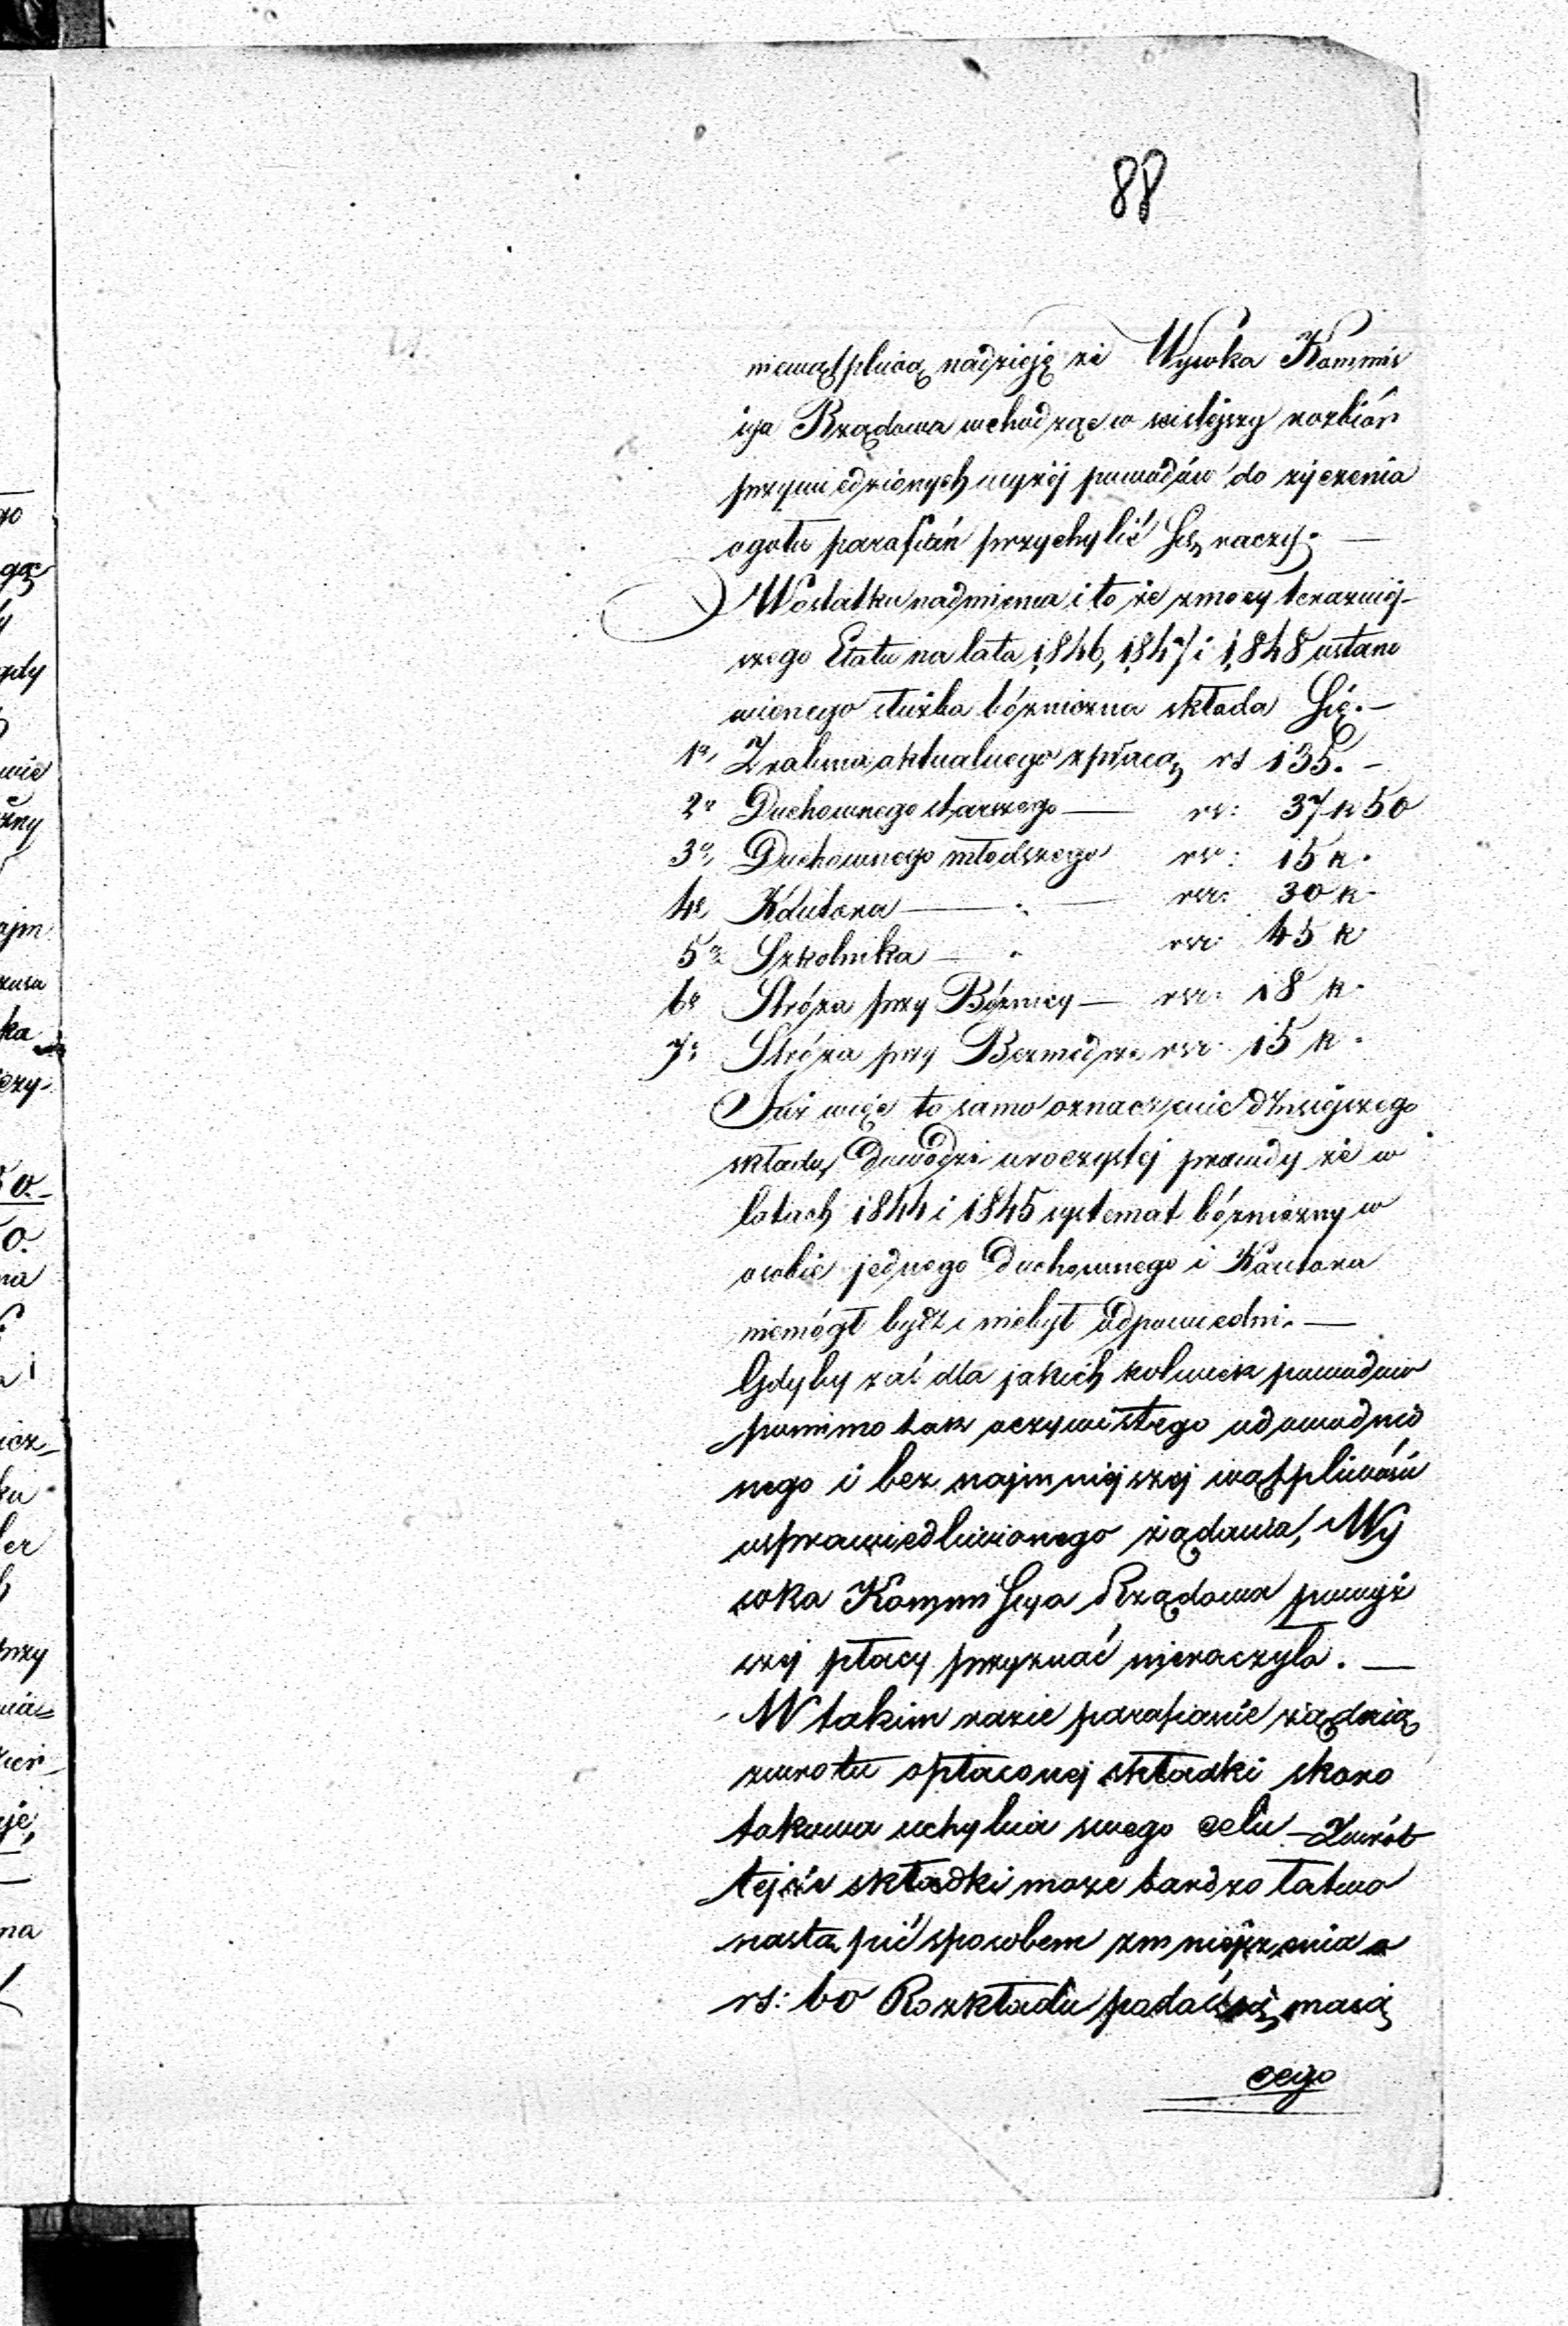 88
niewątpliwą nadzieję że Wysoka Kommis
syia Rządowa wchodząc w ściślejszy rozbiór
przywiedzionych wyżej powodów do życzenia
ogółu parafian przychylić się raczy. —
W ostatku nadmienia i to że z mocy teraźniej-
szego Etatu na lata 1846, 1847 i 1848 ustano
wionego służba bóżniczna składa Się. —
1o, Z rabina aktualnego z płacą rs 135. -
2o Duchownego starszego — rs: 37 k 50
3o, Duchownego młodszego rsr: 15 k.
4o, Kantora — rsr: 30 k.
5o Szkolnika — rsr: 45 k
6o Stróża przy Bóżnicy — rsr: 18 k.
7o Stróża przy rsr: 15 k.
Już więc to samo oznaczenie dzisiejszego
składu, dowodzi uroczystej prawdy że w
latach 1844 i 1845 systemat bóżniczny w
osobie jednego Duchownego i Kantora
niemógł bydź i niebył odpowiedni. —
Gdyby zaś dla jakich kolwiek powodów
pomimo tak oczywistego udowodnio
nego i bez najmniejszej wątpliwości
usprawiedliwionego żądania, Wy
soka Kommissya Rządowa powyż
szej płacy przyznać nieraczyła. —
W takim razie parafianie żądaią
zwrotu opłaconej składki skoro
takowa uchybia swego celu — Zwrót
tejże składki może bardzo łatwo
nastąpić sposobem zmniejszenia o
rs: 60 Rozkładu podać się maią
cego